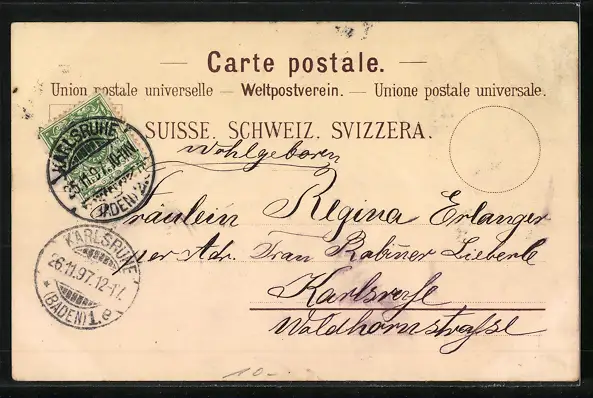 — Carte postale. —
Union postale universelle — Weltpostverein. — Unione postale universale.
SUISSE. SCHWEIZ. SVIZZERA.
Wohlgeboren
Fräulein Regina Erlanger
per Adr. Frau Rabiner Lieberle
Karlsruhe
Waldhornstraße
KARLSRUHE
25.11.97.
(BADEN)
KARLSRUHE
26.11.97.12-1N.
* (BADEN) 1.e *
10.-